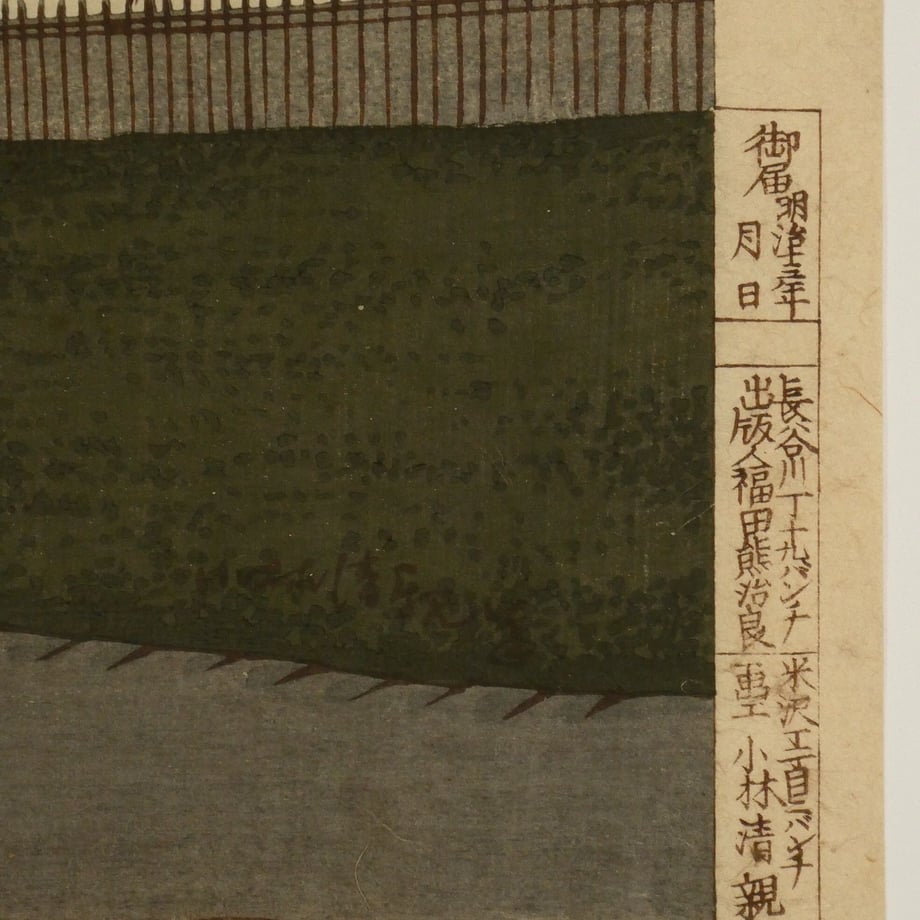 御届
明治十三年
月 日
長谷川丁十九バンチ
出版人福田熊治良
米沢工
画工 小林清親
小林清親